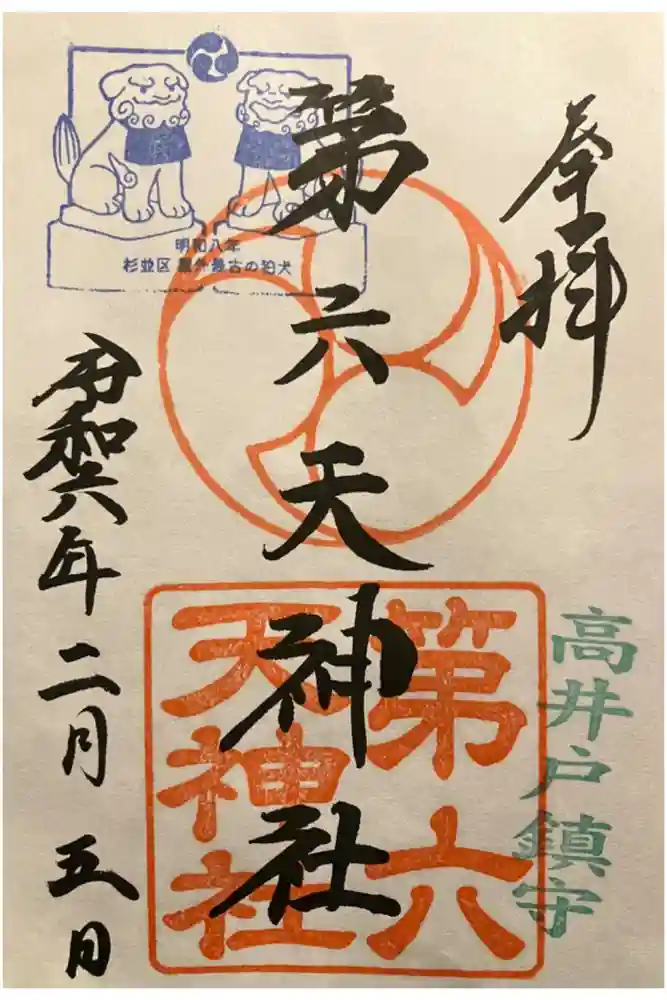 奉拝
高井戸鎮守
第六天神社
第六
天神社
明和八年
杉並区 屋外最古の狛犬
令和六年二月五日